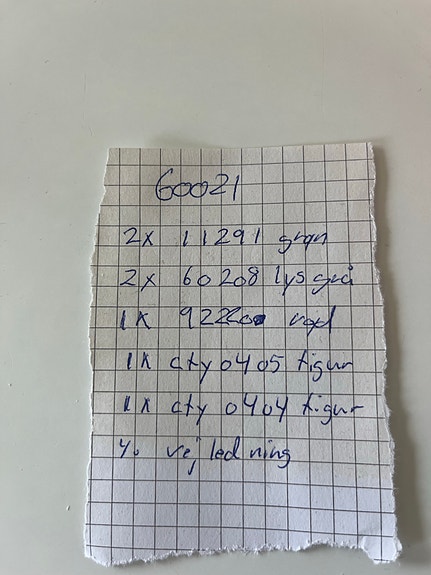 60021
2x 11291 grøn
2x 60208 lys grå
1x 92220 rød
1x cty0405 figur
1x cty 0404 figur
vejledning